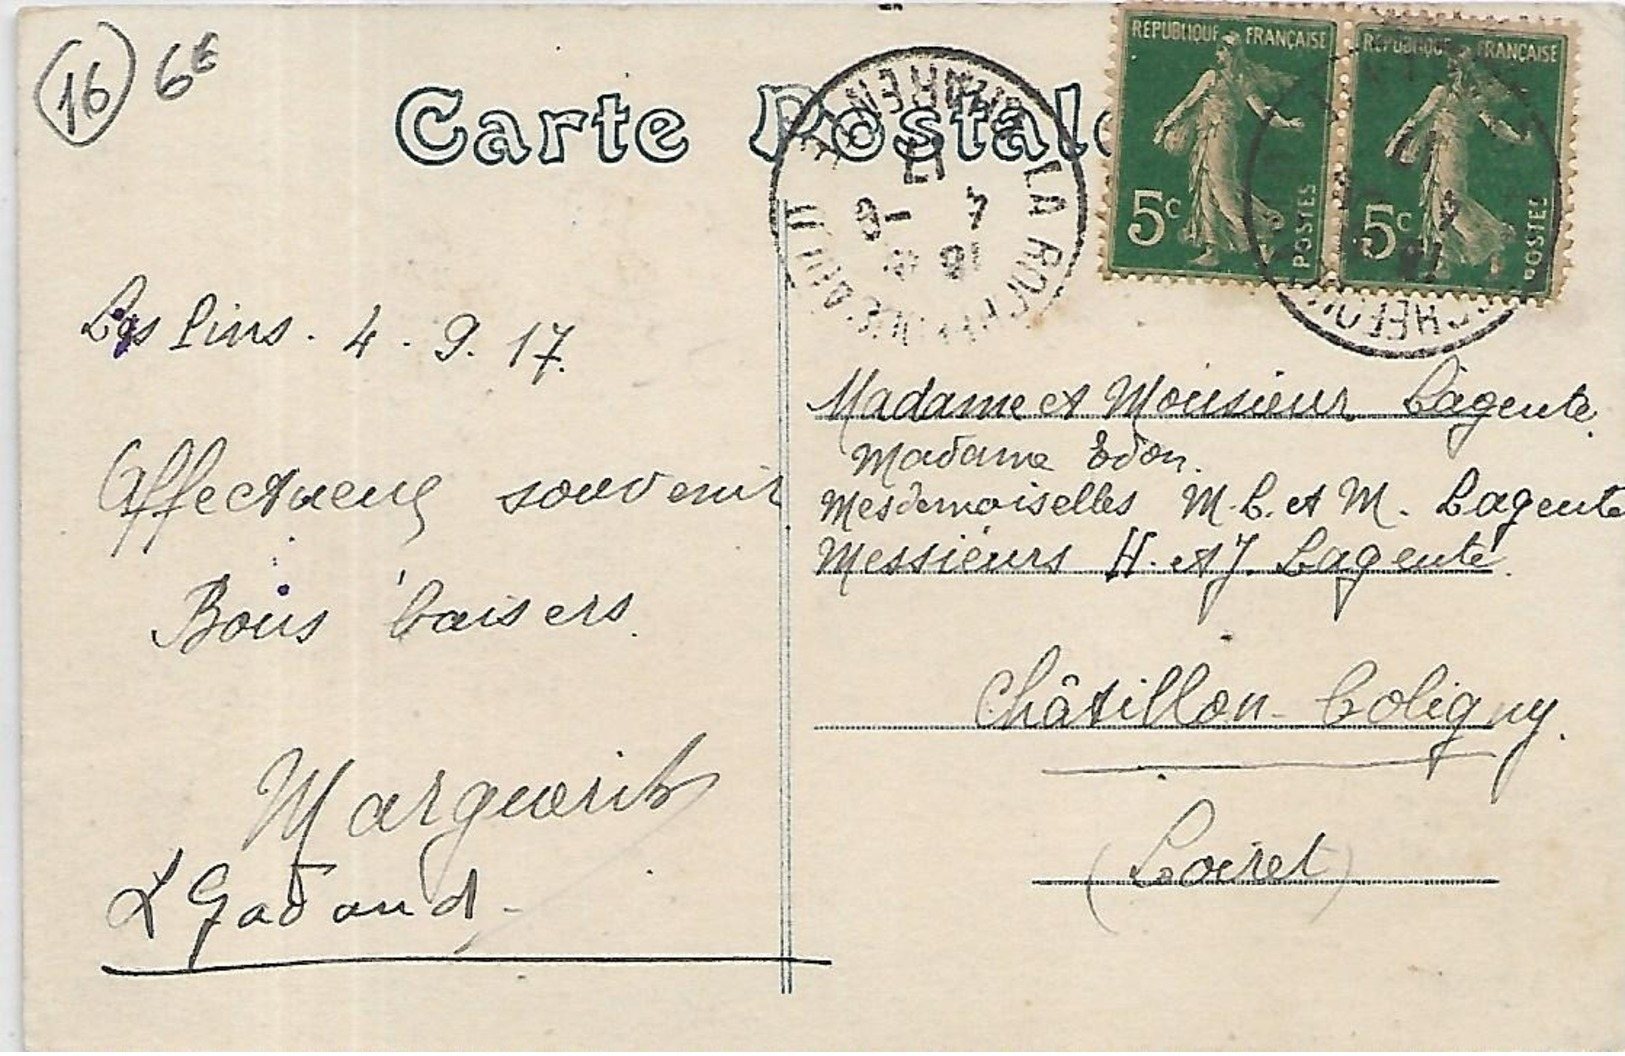 16 6€
Carte Postale
REPUBLIQUE FRANÇAISE
5c POSTES
REPUBLIQUE FRANÇAISE
5c POSTES
LA ROCHEFOUCAULD
18 4 -9 17
Les Pins. 4. 9. 17.
Affectueux souvenir
Bons baisers.
Marguerite
L Gadaud
Madame et Monsieur Lagente
Madame Edon.
Mesdemoiselles M.L. et M. Lagente
Messieurs H. et J. Lagente.
Châtillon-Coligny.
(Loiret)